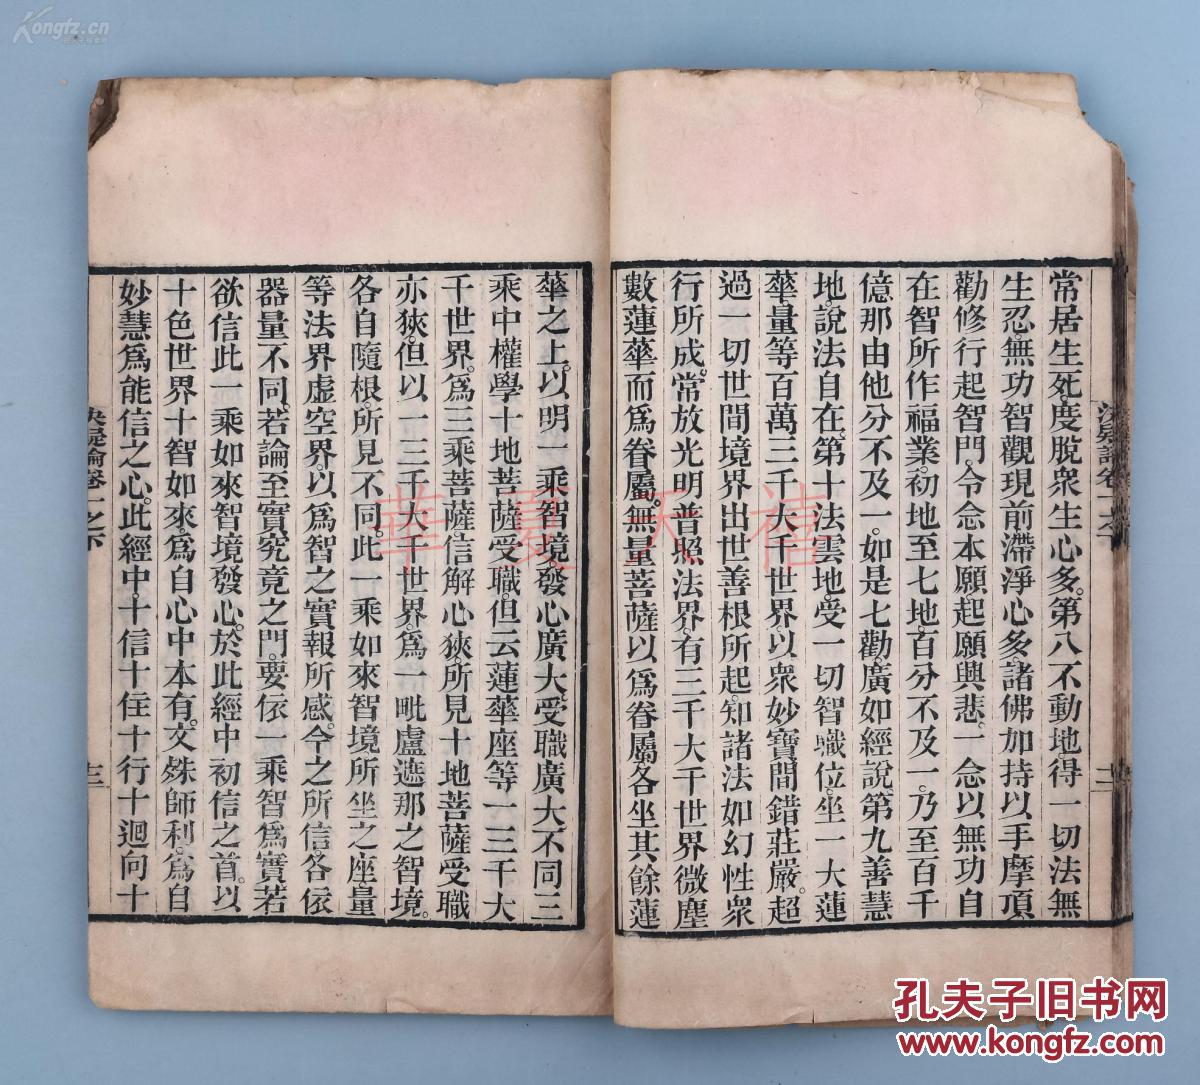 Kongfz.cn
常居生死度脫衆生心多。第八不動地得一切法無
生忍。無功智觀現前滯淨心多。諸佛加持以手摩頂
勸修行起智門。令念本願。起願興悲。一念以無功自
在智所作福業。初地至七地。百分不及一。乃至百千
億那由他分不及一。如是七勸。廣如經說。第九善慧
地。說法自在。第十法雲地。受一切智職位。坐一大蓮
華。量等百萬三千大千世界。以衆妙寶間錯莊嚴。超
過一切世間境界。出世善根所起。知諸法如幻性衆
行所成。常放光明。普照法界。有三千大千世界微塵
數蓮華而爲眷屬。無量菩薩以爲眷屬。各坐其餘蓮
華之上。以明一乘智境。發心廣大。受職廣大。不同三
乘中權學十地菩薩受職。但云蓮華座等一三千大
千世界。爲三乘菩薩信解心狹。所見十地菩薩受職
亦狹。但以一三千大千世界。爲一毗盧遮那之智境。
各自隨根。所見不同。此一乘如來智境。所坐之座量
等法界虛空界。以爲智之實報所感。令之所信。各依
器量不同。若論至實究竟之門。要依一乘智爲實。若
欲信此一乘如來智境發心。於此經中初信之首。以
十色世界十智如來爲自心中本有。文殊師利爲自
妙慧爲能信之心。此經中。十信十住十行十迴向十
決疑論卷一之下
三
華夏天禧
孔夫子旧书网